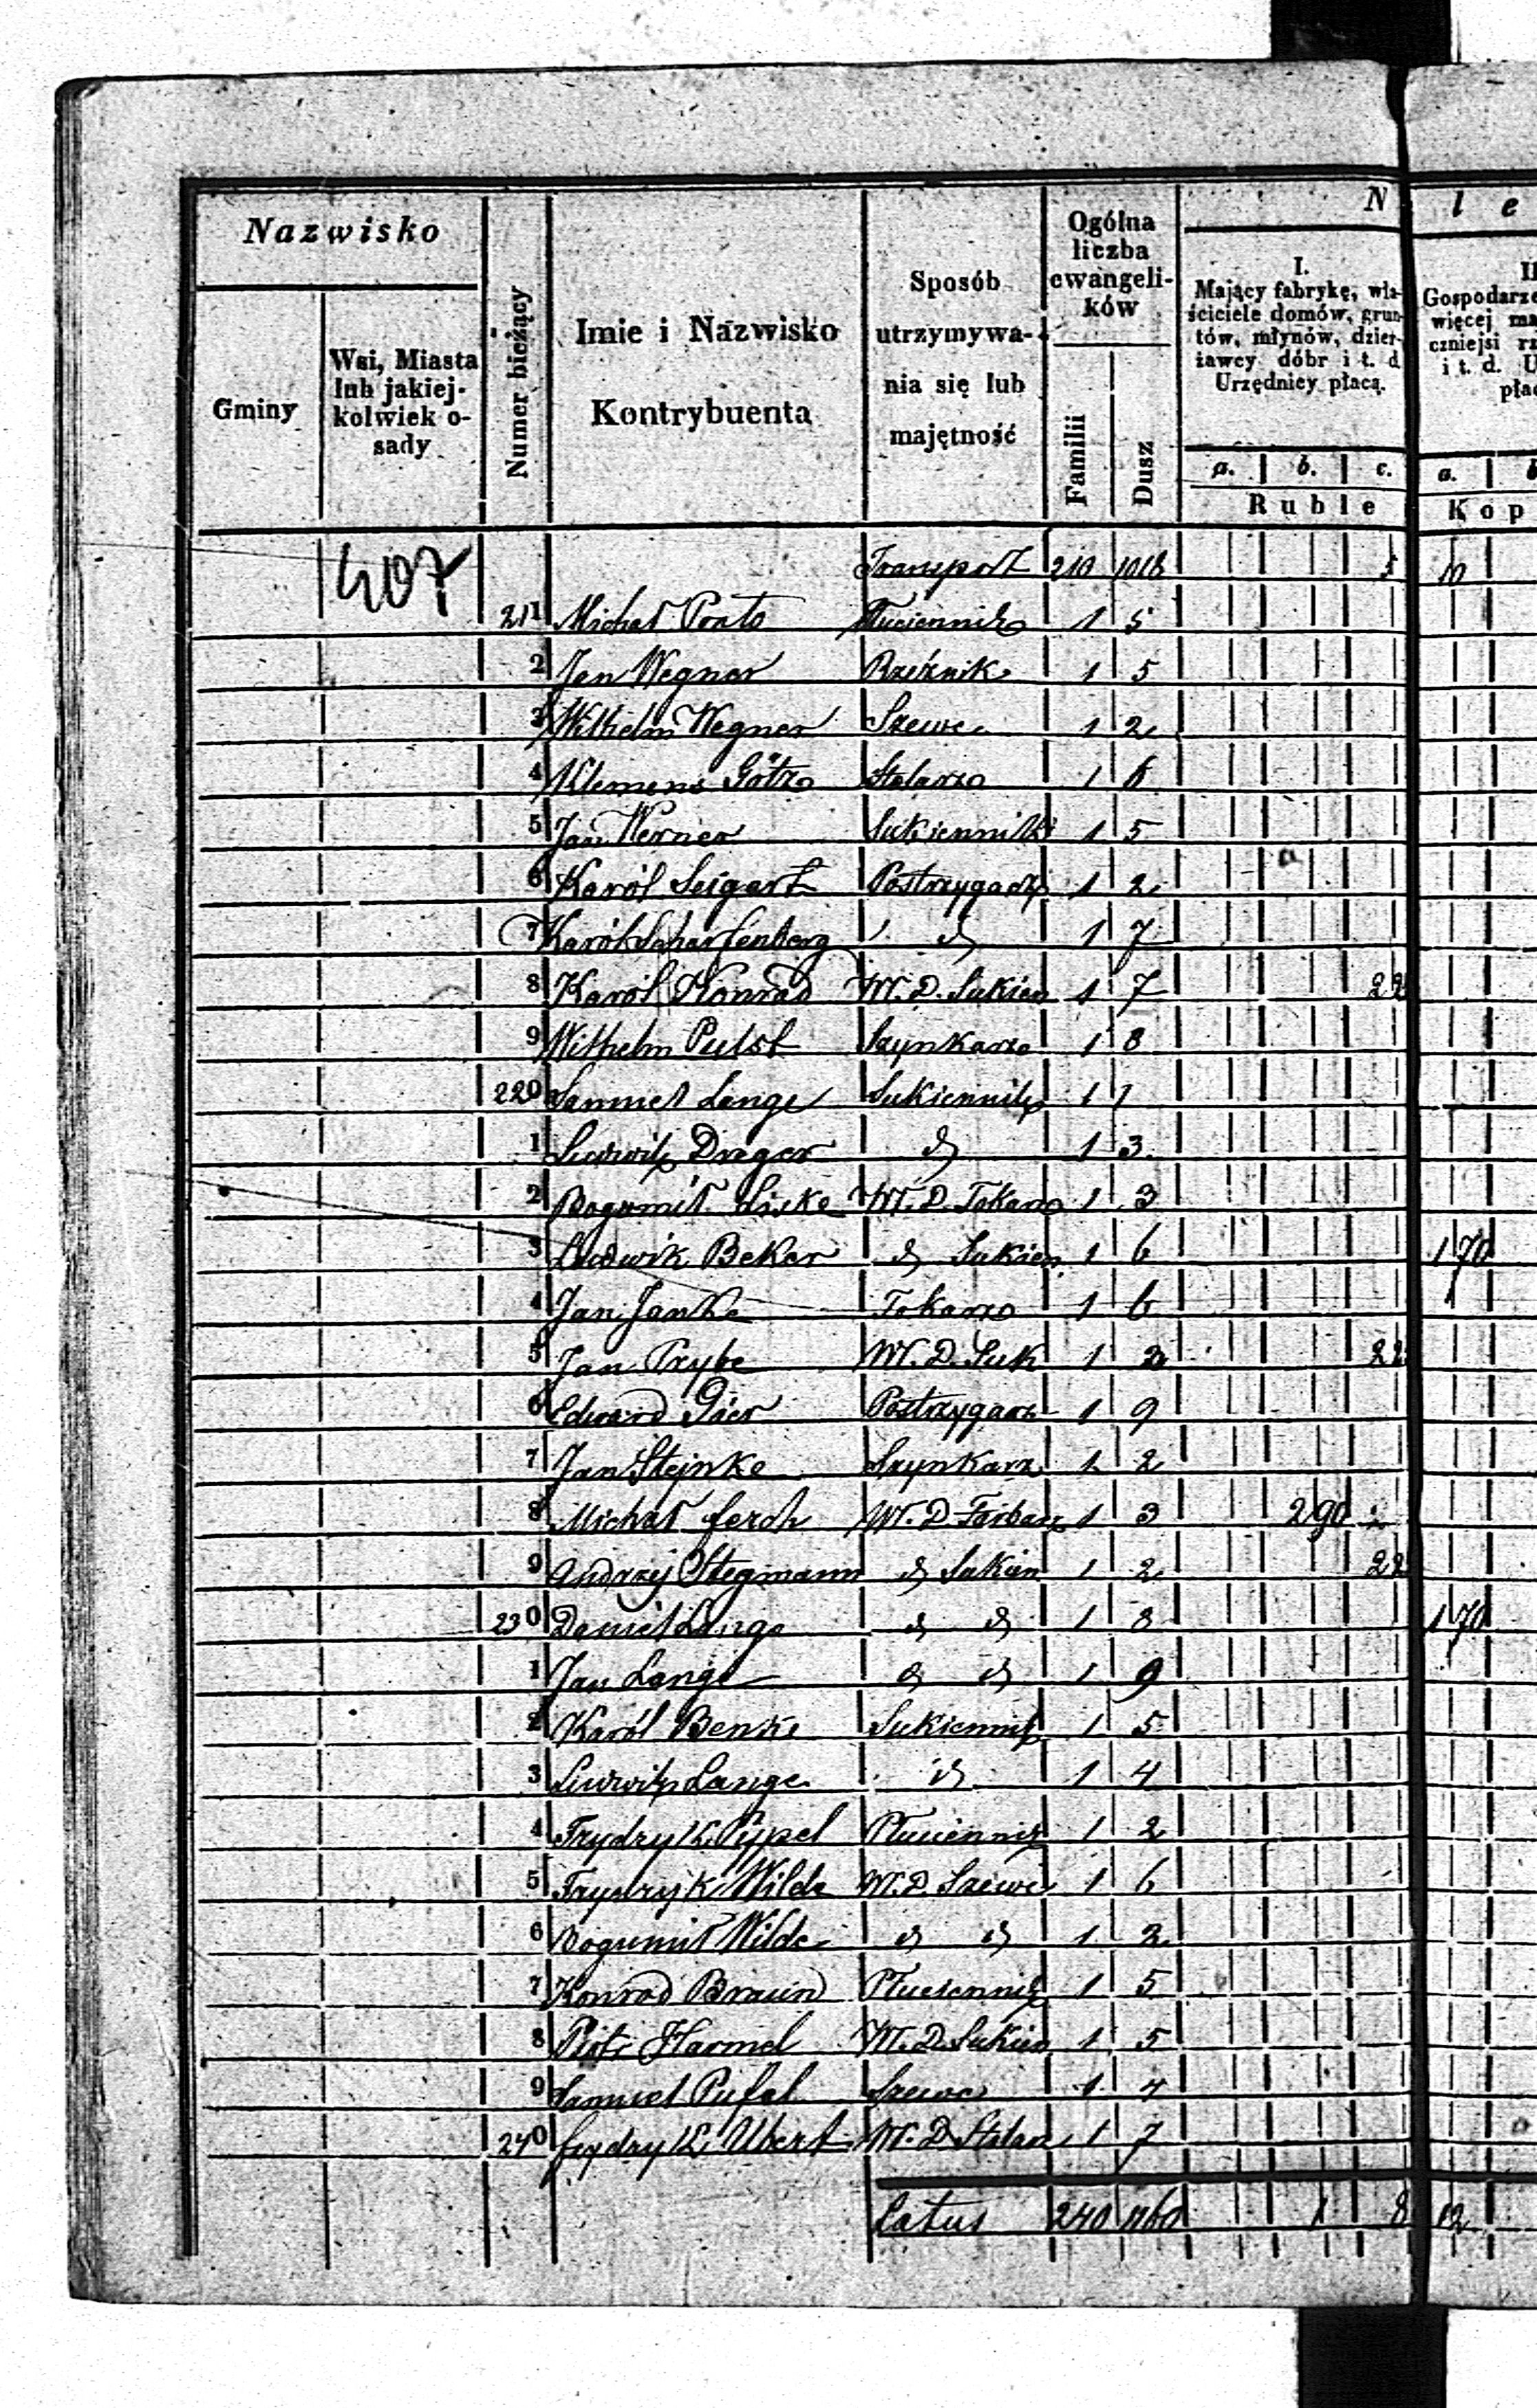 Nazwisko
Gminy
Wsi, Miasta
lub jakiej-
kolwiek o-
sady
Numer bieżący
Imie i Nazwisko
Kontrybuenta
Sposób
utrzymywa-
nia się lub
majętność
Ogólna
liczba
ewangeli-
ków
Familii
Dusz
N l e
I.
Mający fabrykę, wła-
ściciele domów, grun-
tów, młynów, dzier-
żawcy dóbr i t. d
Urzędnicy płacą.
a. b. c.
Ruble
II
Gospodarze
więcej ma
czniejsi rz
i t. d. U
płac
a.
Kop
407
Transport 210 1018 5 10
211 Michał Prats Płuciennik 1 5
2 Jan Wegner Rzeźnik 1 5
3 Wilhelm Wegner Szewc 1 2
4 Klemens Götz Stolarz 1 6
5 Jan Werner Sukiennik 1 5
6 Karól Seigert Postrzygacz 1 2
7 Karól Scharfenberg d 1 7
8 Karól Konrad W. D. Sukien 1 7 2 2
9 Wilhelm Pulst Szynkarz 1 8
220 Samuel Lange Sukiennik 1 1
1 Ludwik Dreger d 1 3
2 Bogumił Liske W. D. Tokarz 1 3
3 Ludwik Beker d Sukien 1 6 1 70
4 Jan Janke Tokarz 1 6
5 Jan Prybe W. D. Suk 1 3 2 2
6 Edward Gier Postrzygacz 1 9
7 Jan Stejnke Szynkarz 1 2
8 Michał Ferch W. D. Farbarz 1 3 2 90
9 Andrzej Stegmann d Sukien 1 2 2 2
230 Daniel Lange d d 1 8 1 70
1 Jan Lange d d 1 9
2 Karól Benke Sukiennik 1 5
3 Ludwik Lange d 1 4
4 Frydryk Pippel Płuciennik 1 2
5 Frydryk Wilde W. D. Szewc 1 6
6 Bogumił Wilde d d 1 2
7 Konrad Braun Płuciennik 1 5
8 Piotr Harmel W. D. Sukien 1 5
9 Samuel Pufal Szewc 1 4
240 Frydryk Ubert W. D. Stolarz 1 7
Latus 240 1160 1 8 12